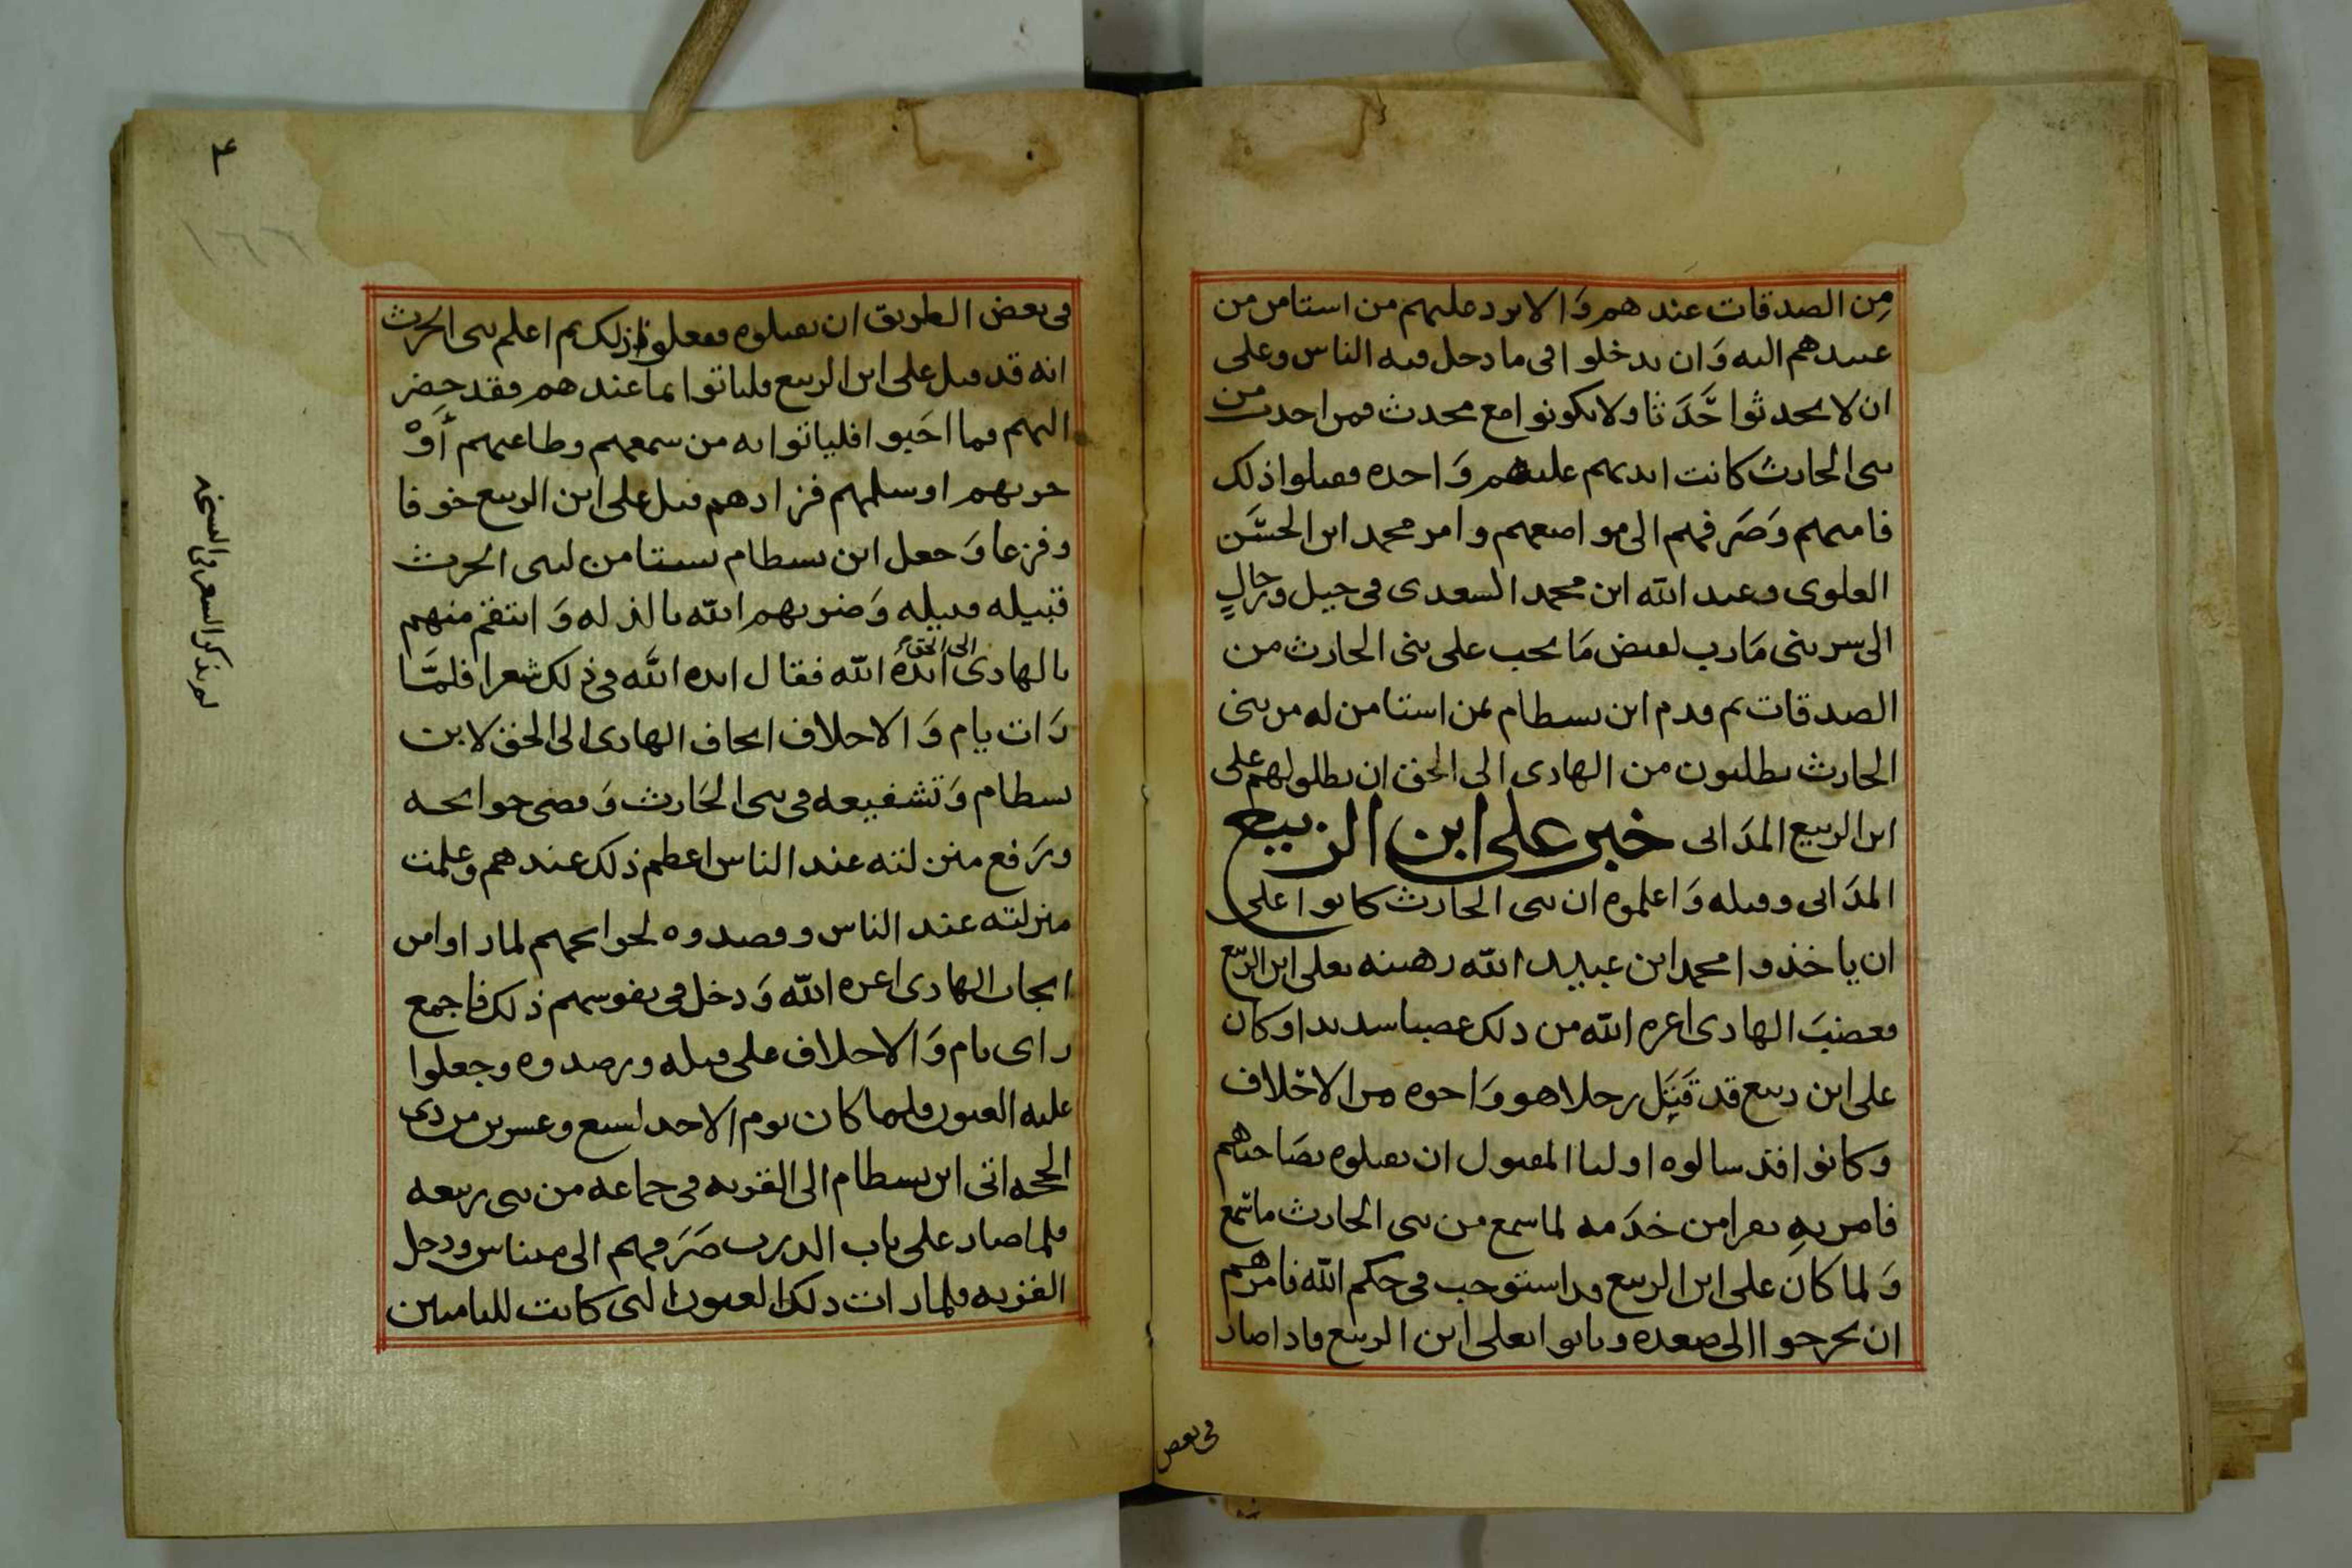 مِن الصدقات عندهم وَالا يرد عليهم من استامن من
عبيدهم اليه وَان يدخلوا في ما دخل فيه الناس وعلى
ان لا يحدثوا حَدَثا ولا يكونوا مع محدث فمن احدث من
بني الحارث كانت ايديهم عليهم وَاحده فقبلوا ذلك
فامنهم وَصَرفهم الى مواضعهم وامر محمد ابن الحسَن
العلوي وعبد الله ابن محمد السعدي في خيل ورجالٍ
الى سر بني مَارب لقبض مَا يجب على بني الحارث من
الصدقات ثم قدم ابن بسطام بمن استامن له من بني
الحارث يطلبون من الهادي الى الحق ان يطلق لهم على
ابن الربيع المدَاني خبر على ابن الربيع
المدَاني وقتله وَاعلموه ان بني الحارث كانوا على
ان ياخذوا محمد ابن عبيد الله رهينه بعلى ابن الربيع
فغضبَ الهادي اعزه الله من ذلك غضبا شديدا وكان
على ابن ربيع قد قَتَل رجلا هو وَاخوه من الاخلاف
وكانوا قد سالوه اوليا المقتول ان يقتلوه بصَاحبهم
فامر بهِ نفرا من خدَمه لما سمع من بني الحارث ما سمع
وَلما كان على ابن الربيع قد استوجب في حكم الله فامرهم
ان يخرجوا الى صعده وياتوا بعلى ابن الربيع فاذا صار
في بعض
في بعض الطريق ان يقتلوه ففعلوا ذلك ثم اعلم بني الحرث
انه قد قتل على ابن الربيع فلياتوا بما عندهم فقد حضر
اليهم فما احَبوا فلياتوا به من سمعهم وطاعتهم أوْ
حربهم او سلمهم فزادهم قتل على ابن الربيع خوفا
وفزعا وَجعل ابن بسطام يستامن لبني الحرث
قبيله قبيله وَضربهم الله بالذله وَانتقم منهم
بالهادي الى الحق ايده الله فقال ايده الله في ذلك شعرا فلمَّا
رَات يام وَالاحلاف ايجاف الهادي الى الحق لابن
بسطام وَتشفيعه في بني الحَارث وَقضى حوائجه
ورَفع منزلته عند الناس اعظم ذلك عندهم وعلمت
منزلته عند الناس وقصدوه لحوائجهم لما راوا من
ايجاب الهادي اعزه الله وَدخل في نفوسهم ذلك فاجمع
راي يام وَالاحلاف على قتله ورصدوه وجعلوا
عليه العيون فلما كان يوم الاحد لسبع وعشرين من ذي
الحجه اتى ابن بسطام الى القريه في جماعه من بني ربيعه
فلما صار على باب الدرب صَرَفهم الى ميناس ودخل
القريه فلما رات ذلك العيون التي كانت لليامين
لم يذكر الشعر في النسخه